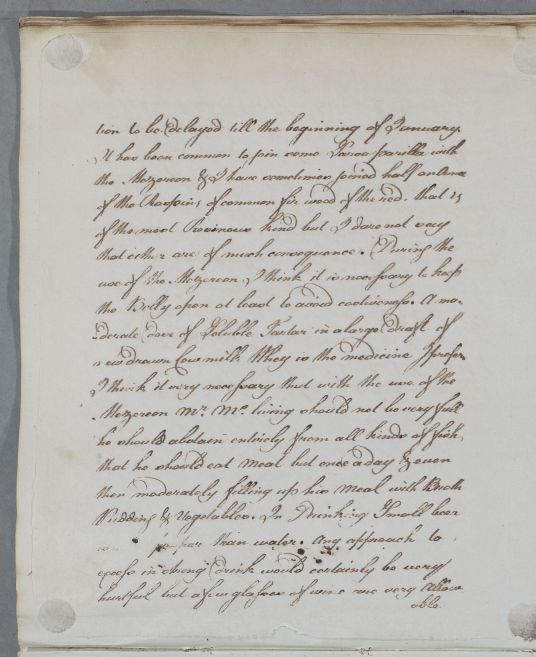 tion to be delayed till the beginning of January.
It has been common to join some Sarsaparilla with
the Mezereon & I have sometimes joined half an ounce
of the Raspings of common fir wood of the red. that is
of the most Resinous kind but I dare not say
that either are of much consequence. During the
use of the Mezereon I think it is necessary to keep
the Belly open at least to avoid costiveness. A mo-
derate dose of Soluble Tartar in a large draft of
new drawn Cow milk Whey is the medicine I prefer
I think it very necessary that with the use of the
Mezereon Mr. Mc. living should not be very full
he should abstain entirely from all kinds of fish,
that he should eat Meat but once a day & even
then moderately filling up his Meal with Broth
Pudding & Vegetables. In Drinking Small beer
than water. Any approach to
excess in strong drink would certainly be very
hurtful but a few glasses of wine are very allow
able.